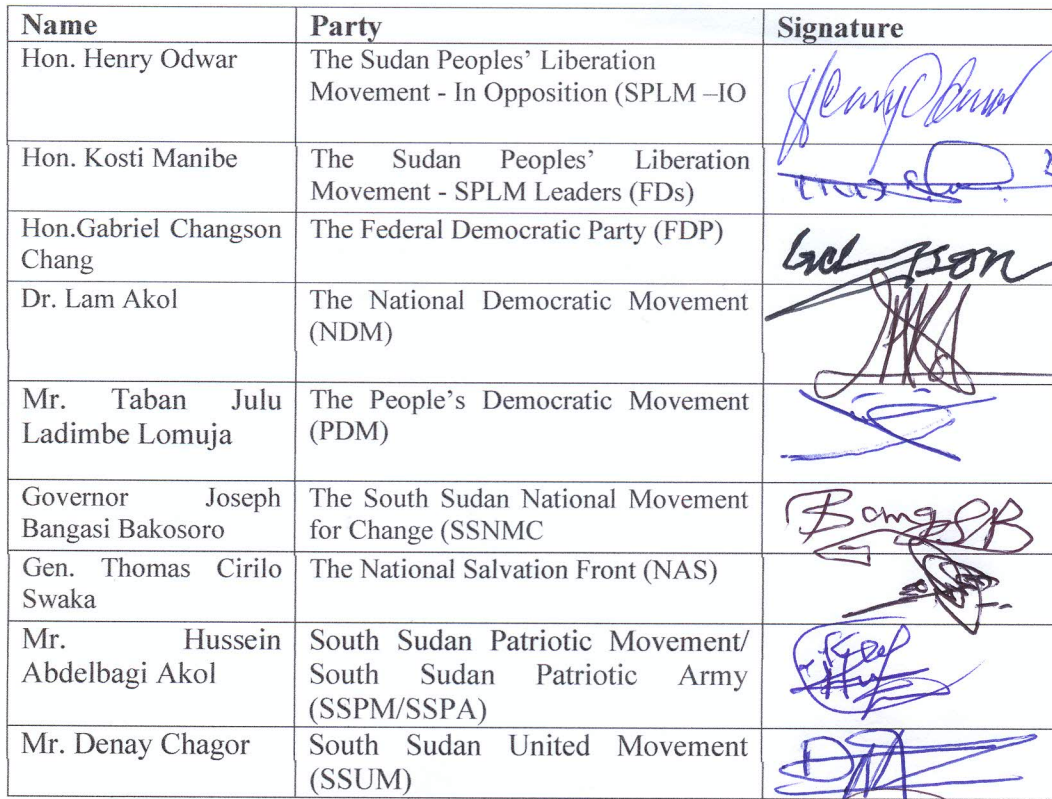 Name Party Signature
Hon. Henry Odwar The Sudan Peoples' Liberation
Movement - In Opposition (SPLM –IO
Henry Odwar
Hon. Kosti Manibe The Sudan Peoples' Liberation
Movement - SPLM Leaders (FDs)
Hon.Gabriel Changson The Federal Democratic Party (FDP)
Chang
Dr. Lam Akol The National Democratic Movement
(NDM)
Mr. Taban Julu The People's Democratic Movement
Ladimbe Lomuja (PDM)
Governor Joseph The South Sudan National Movement
Bangasi Bakosoro for Change (SSNMC
Gen. Thomas Cirilo The National Salvation Front (NAS)
Swaka
Mr. Hussein South Sudan Patriotic Movement/
Abdelbagi Akol South Sudan Patriotic Army
(SSPM/SSPA)
Mr. Denay Chagor South Sudan United Movement
(SSUM)